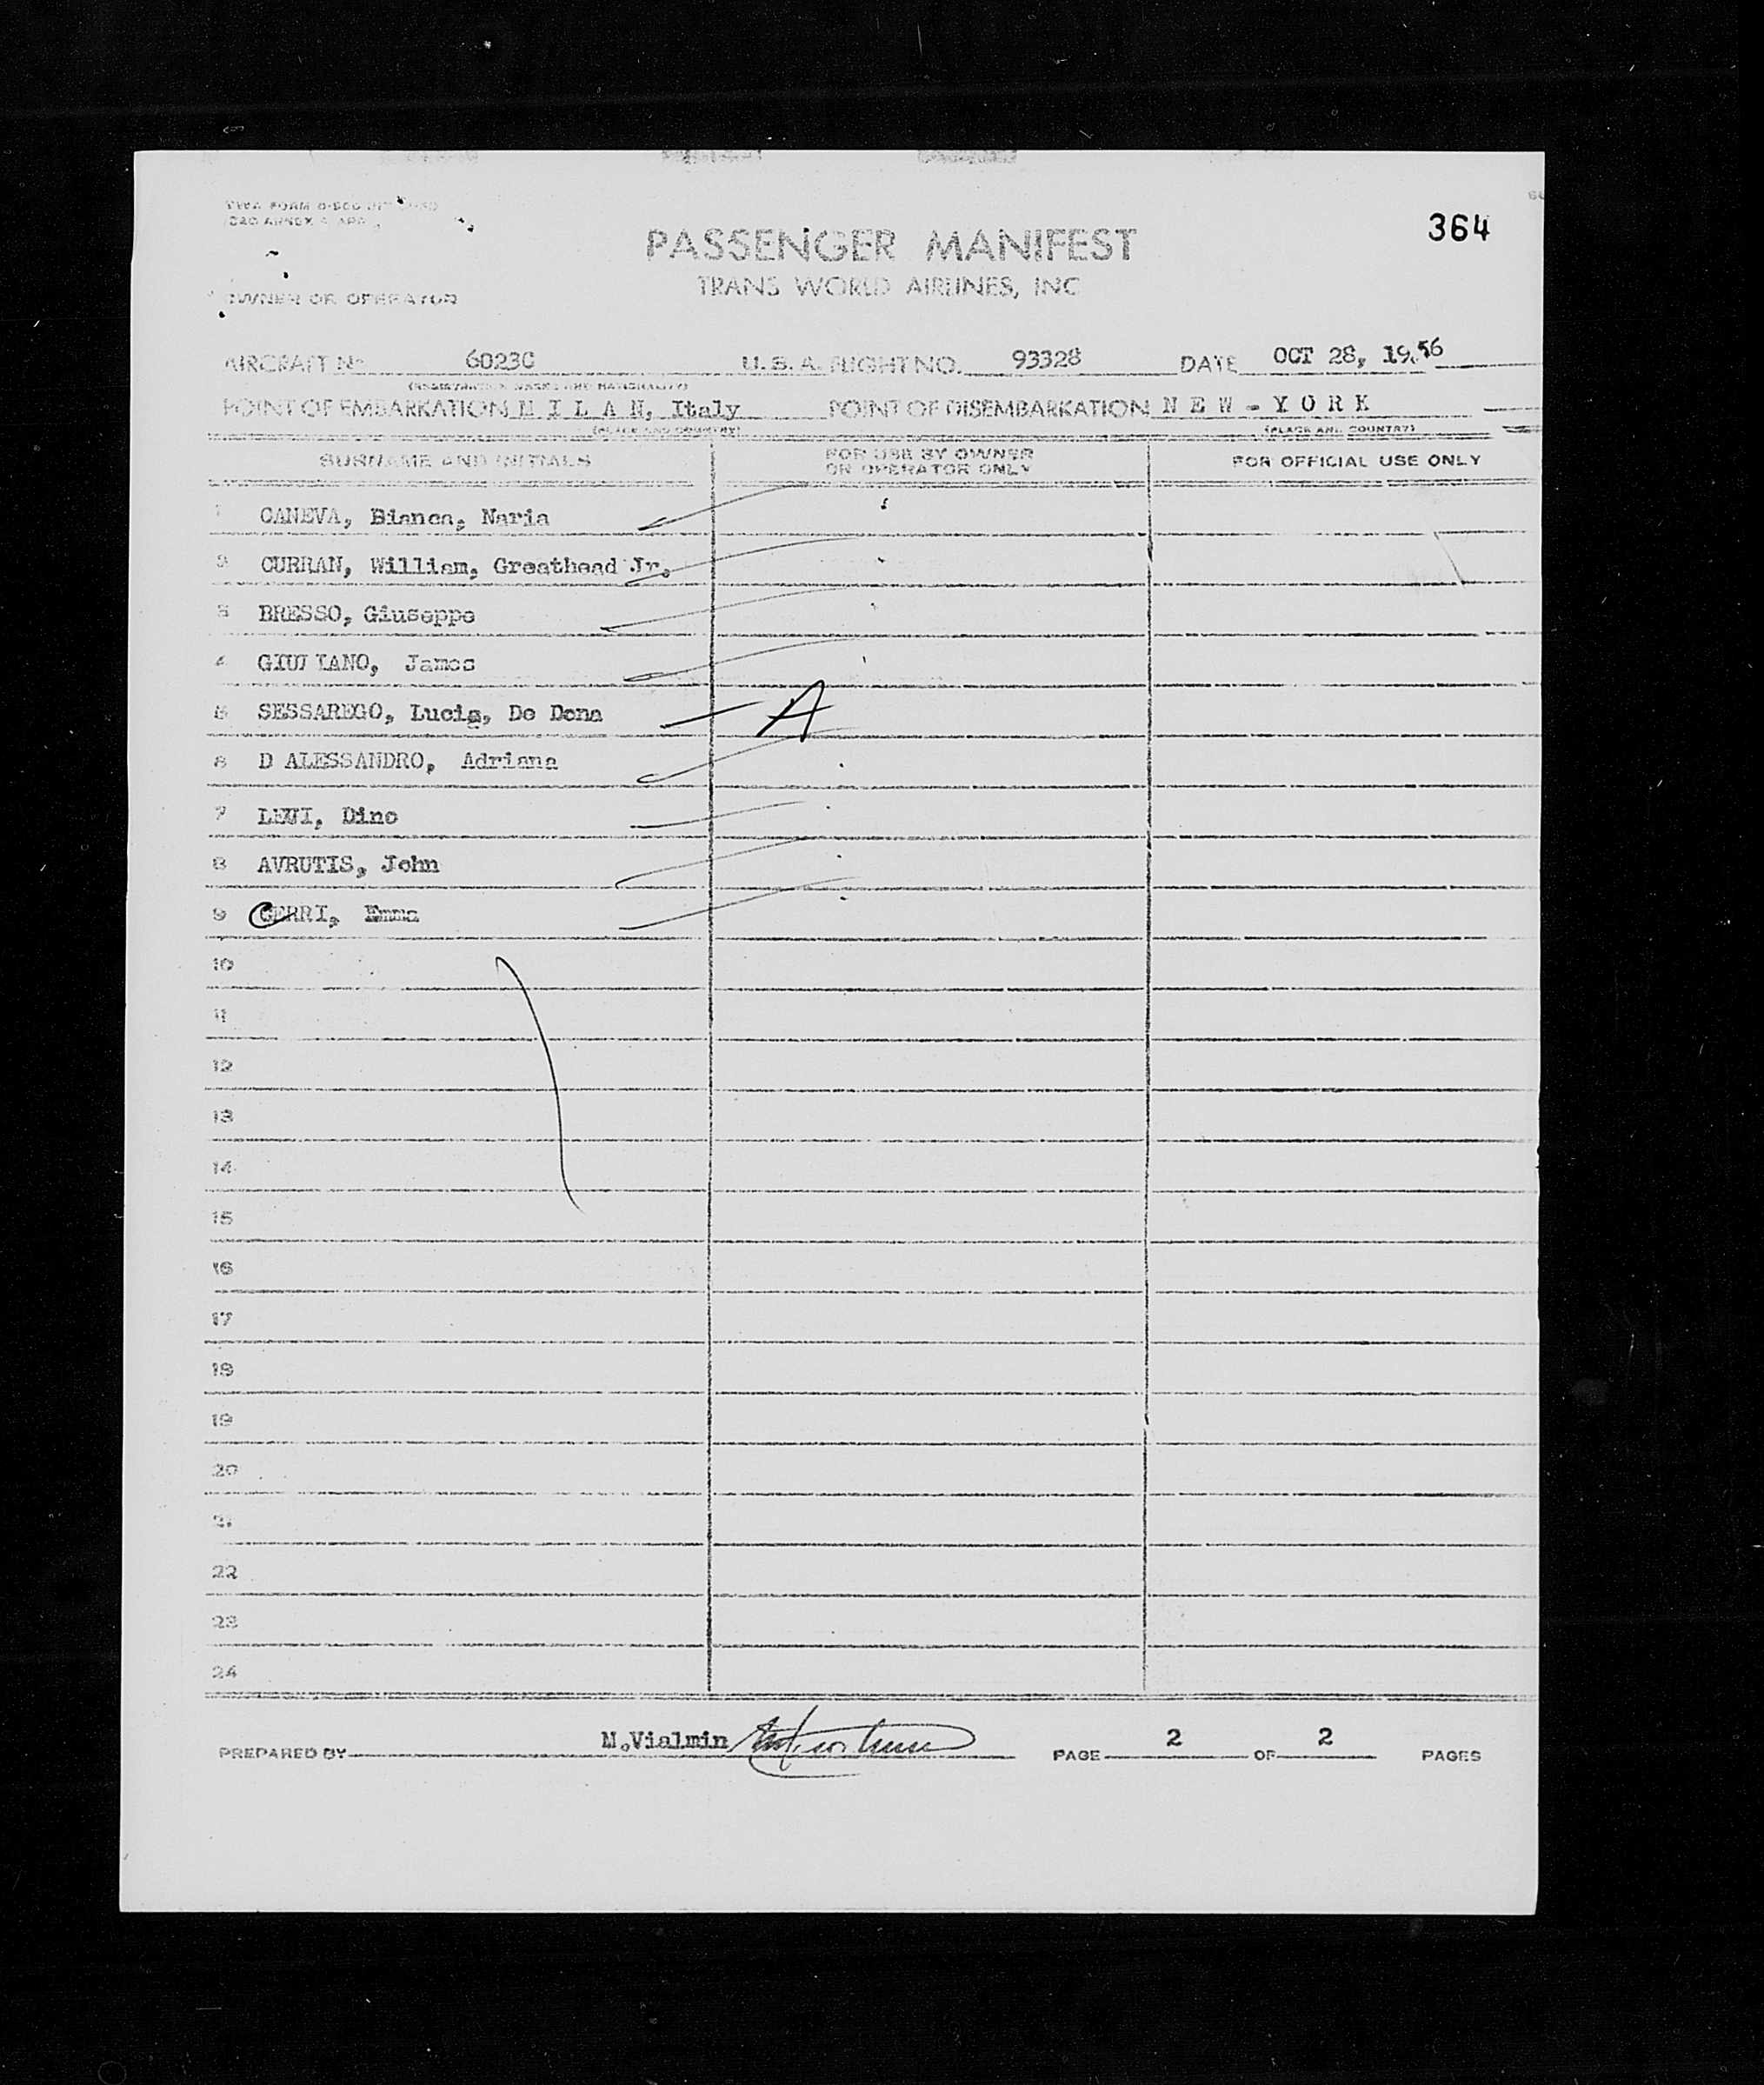 364
PASSENGER MANIFEST
TRANS WORLD AIRLINES, INC
OWNER OR OPERATOR
AIRCRAFT No 6023C U. S. A. FLIGHT NO. 93328 DATE OCT 28, 1956
POINT OF EMBARKATION M I L A N, Italy POINT OF DISEMBARKATION N E W - Y O R K
(PLACE AND COUNTRY) (PLACE AND COUNTRY)
SURNAME AND INITIALS FOR USE BY OWNER OR OPERATOR ONLY FOR OFFICIAL USE ONLY
1 CANEVA, Bianca, Naria
2 CURRAN, William, Greathead Jr.
3 BRESSO, Giuseppe
4 GIULIANO, James
5 SESSAREGO, Lucia, De Dona A
6 D ALESSANDRO, Adriana
7 LEVI, Dino
8 AVRUTIS, John
9 CERRI, Emma
10
11
12
13
14
15
16
17
18
19
20
21
22
23
24
PREPARED BY M.Vialmin PAGE 2 OF 2 PAGES